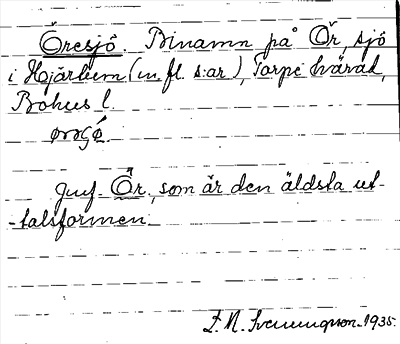 Öresjö. Binamn på Ör, sjö
i Hjärtum (m. fl. s:ar), Torpe härad,
Bohus l.
Jmf. Ör, som är den äldsta ut-
-talsformen.
1935.